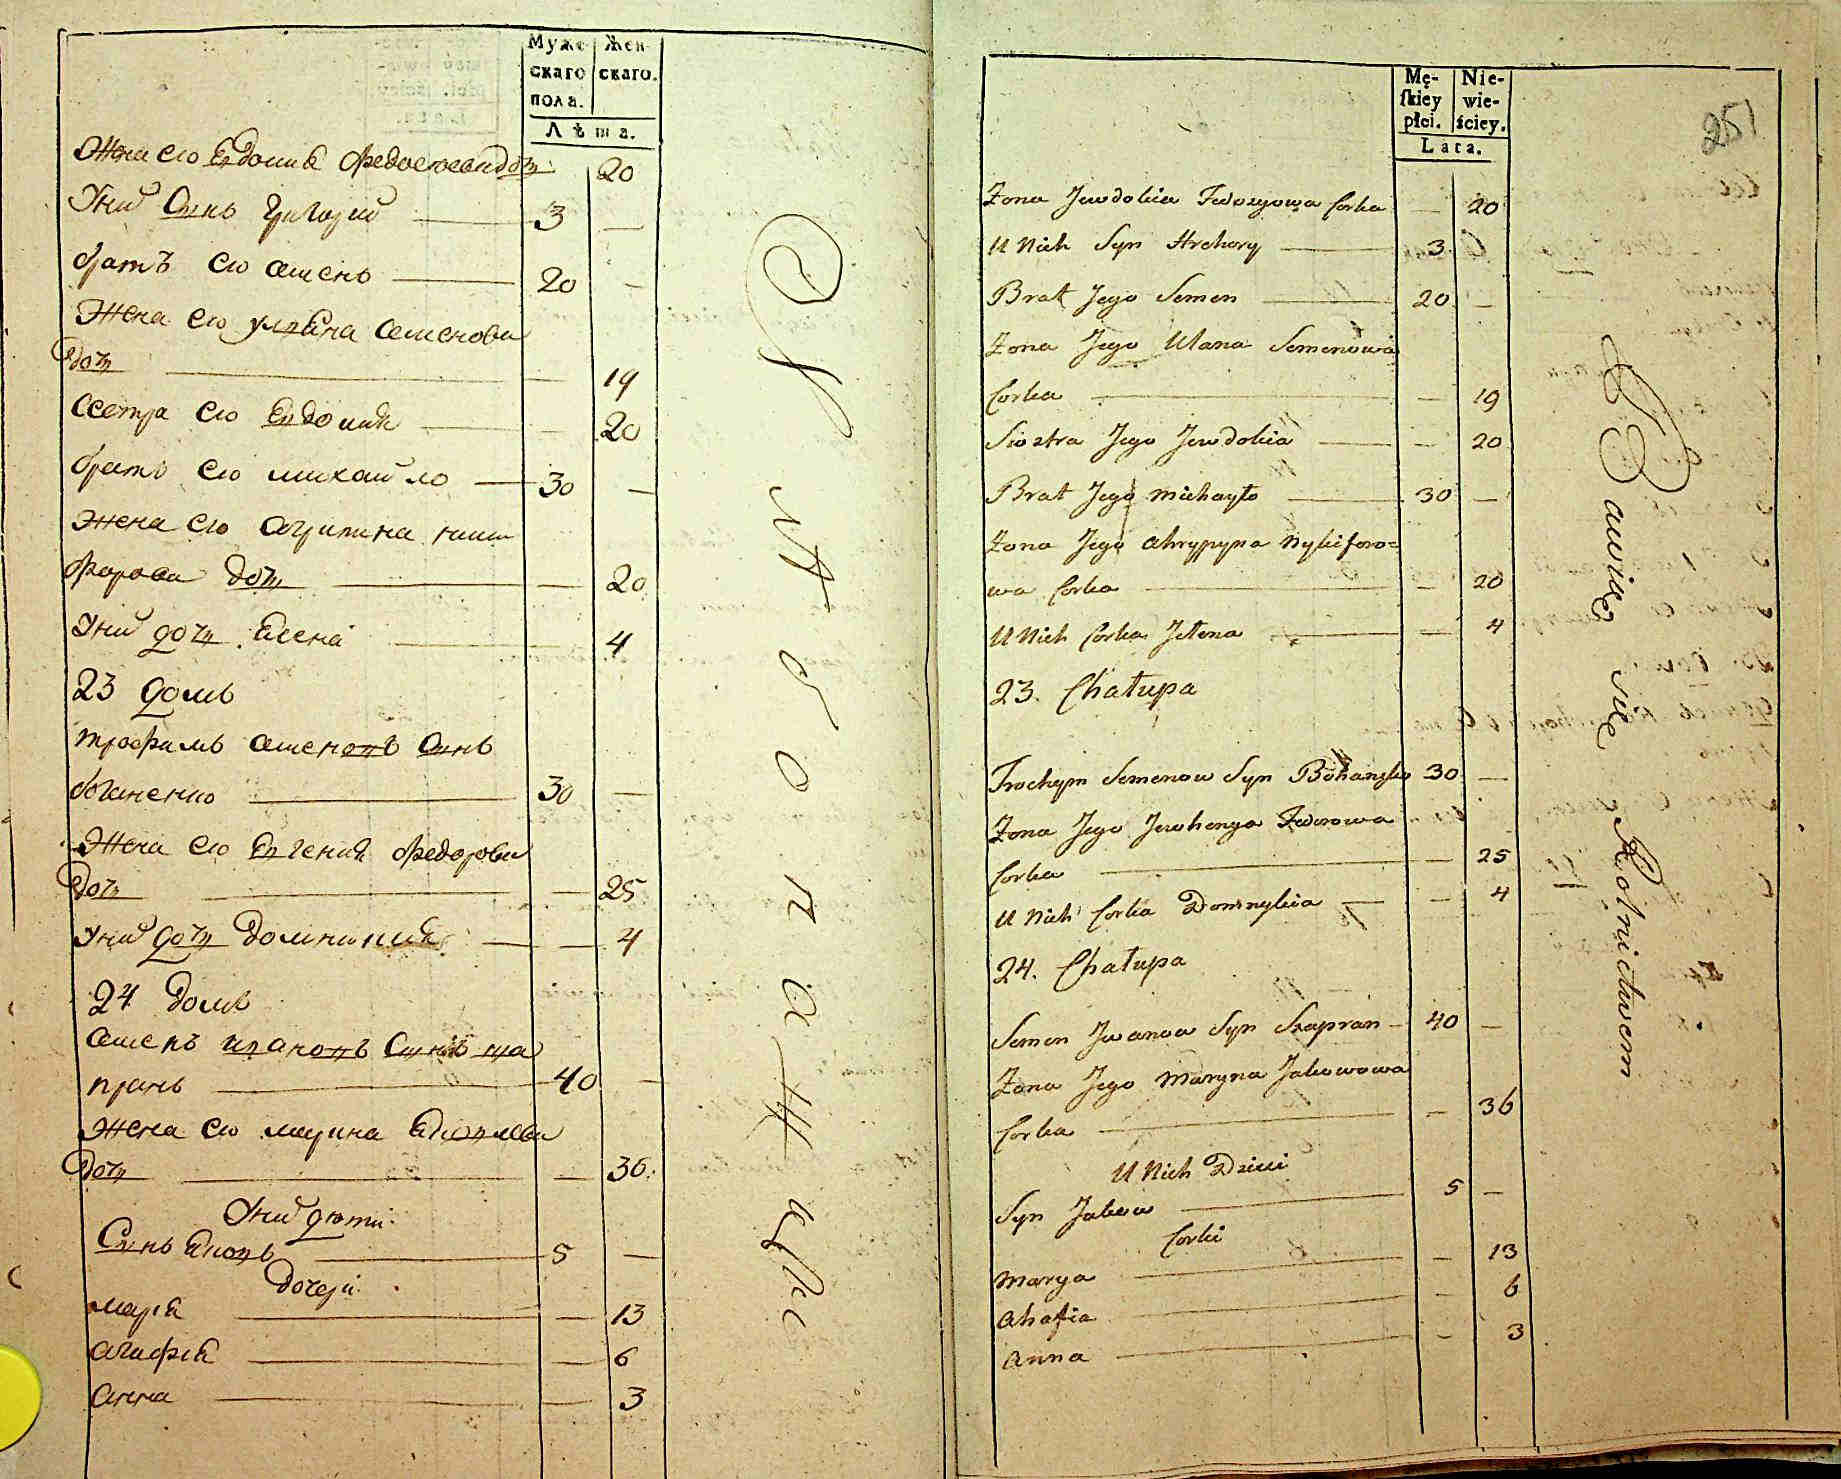 Муже-
скаго
пола.
Жен-
скаго.
Лѣта.
Жена его Евдокия Федосеева дочь 20
У них Сынъ Григорий 3
братъ его семенъ 20
Жена его улияна семенова
дочь 19
сестра его Евдокия 20
братъ его михайло 30
жена его агрипина ники
форова дочь 20
У них дочь Елена 4
23 домъ
трофимъ семеновъ Сынъ
боганенко 30
Жена его Евгения Федорова
дочь 25
У них дочь доминикия 4
24 домъ
семенъ ивановъ Сынъ ша
пранъ 40
жена его марина яковлева
дочь 36
У них дети
Сынъ яковъ 5
дочери
мария 13
агафия 6
анна 3
Mę-
ſkiey
płci.
Nie-
wie-
ściey.
Lata.
251
Zona Jewdokia Fedosyiowa Corka 20
U Nich Syn Hrehory 3
Brat Jego Semen 20
Zona Jego Ulana Semenowa
Corka 19
Siostra Jego Jewdokia 20
Brat Jego Michayło 30
Zona Jego Ahrypyna Nykiforo=
wa Corka 20
U Nich Corka Jełena 4
23. Chałupa
Trochym Semenow Syn Bohanenko 30
Zona Jego Jewhenya Fedorowa
Corka 25
U Nich Corka Dominykia 4
24. Chałupa
Semen Jwanow Syn Szapran 40
Zona Jego Maryna Jakowowa
Corka 36
U Nich Dzieci
Syn Jakow 5
Corki
Marya 13
Ahafia 6
Anna 3
Bawiący się Rolnictwem